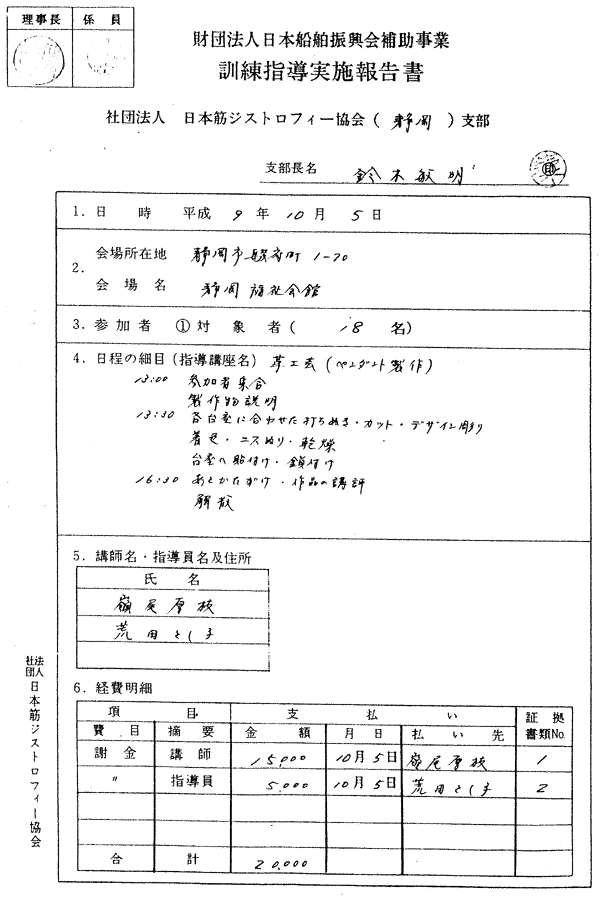 理事長 係員
財団法人日本船舶振興会補助事業
訓練指導実施報告書
社団法人 日本筋ジストロフィー協会(静岡)支部
支部長名 鈴木敏明
1.日 時 平成 9 年 10 月 5 日
2. 会場所在地 静岡市駿府町 1-70
会場名 静岡福祉会館
3.参加者 ①対象者( 18 名)
4.日程の細目(指導講座名) 革工芸(ペンダント製作)
13:00 参加者集合
製作物説明
13:30 各台座に合わせた打ちぬき・カット・デザイン彫り
着色・ニスぬり・乾燥
台座へ貼付け・鎖付け
16:30 あとかたずけ・作品の講評
解散
5.講師名・指導員名及住所
氏 名
嶺尾
荒田とし子
6.経費明細
項 目 支 払 い 証 拠
費 目 摘 要 金 額 月 日 払 い 先 書類No.
謝金 講師 15,000 10月5日 嶺尾 1
〃 指導員 5,000 10月5日 荒田とし子 2
合 計 20,000
社団法人 日本筋ジストロフィー協会